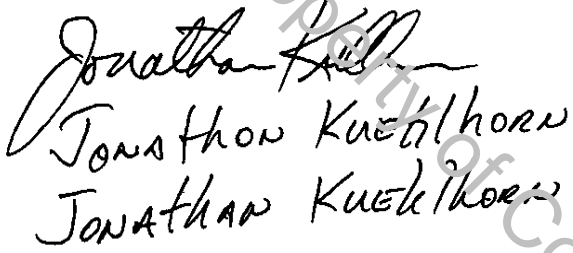 Jonathan Kuehlhorn
Jonathon Kuehlhorn
Jonathan Kuehlhorn
Property of Co